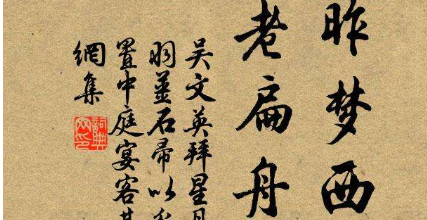 昨梦西
老扁舟
吴文英拜星月
羽姜石帚以
置中庭宴客其
網集